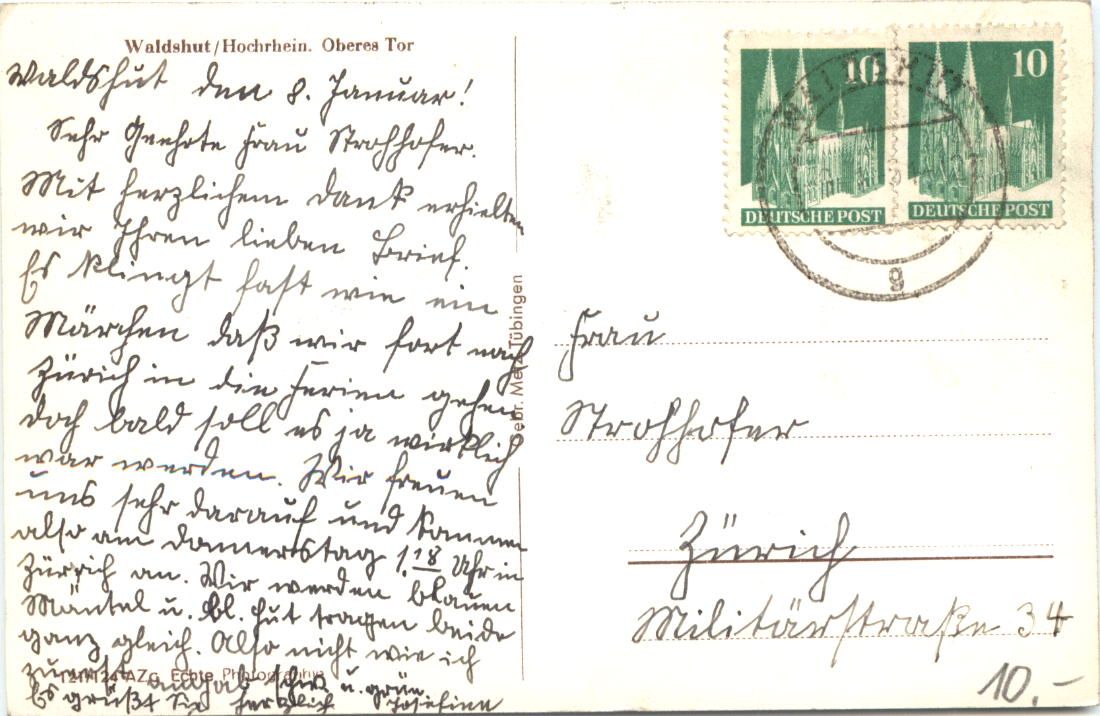 Waldshut/Hochrhein. Oberes Tor
Waldshut den 8. Januar!
Sehr Geehrte Frau Strohhofer.
Mit herzlichem Dank erhielten
wir Ihren lieben Brief.
Es klingt fast wie ein
Märchen daß wir fort nach
Zürich in die Ferien gehen
doch bald soll es ja wirklich
war werden. Wir freuen
uns sehr darauf und kommen
also am Donnerstag 1.18 Uhr in
Zürich an. Wir werden blauen
Mäntel u. bl. Hut tragen beide
ganz gleich. Also nicht wie ich
zuerst angab schw. u. grün
Es grüßt Sie herzlich Josefine
121/124 AZg Echte Photographie
Gebr. Metz, Tübingen
10
DEUTSCHE POST
10
DEUTSCHE POST
WALDSHUT
g
Frau
Strohhofer
Zürich
Militärstraße 34
10.-